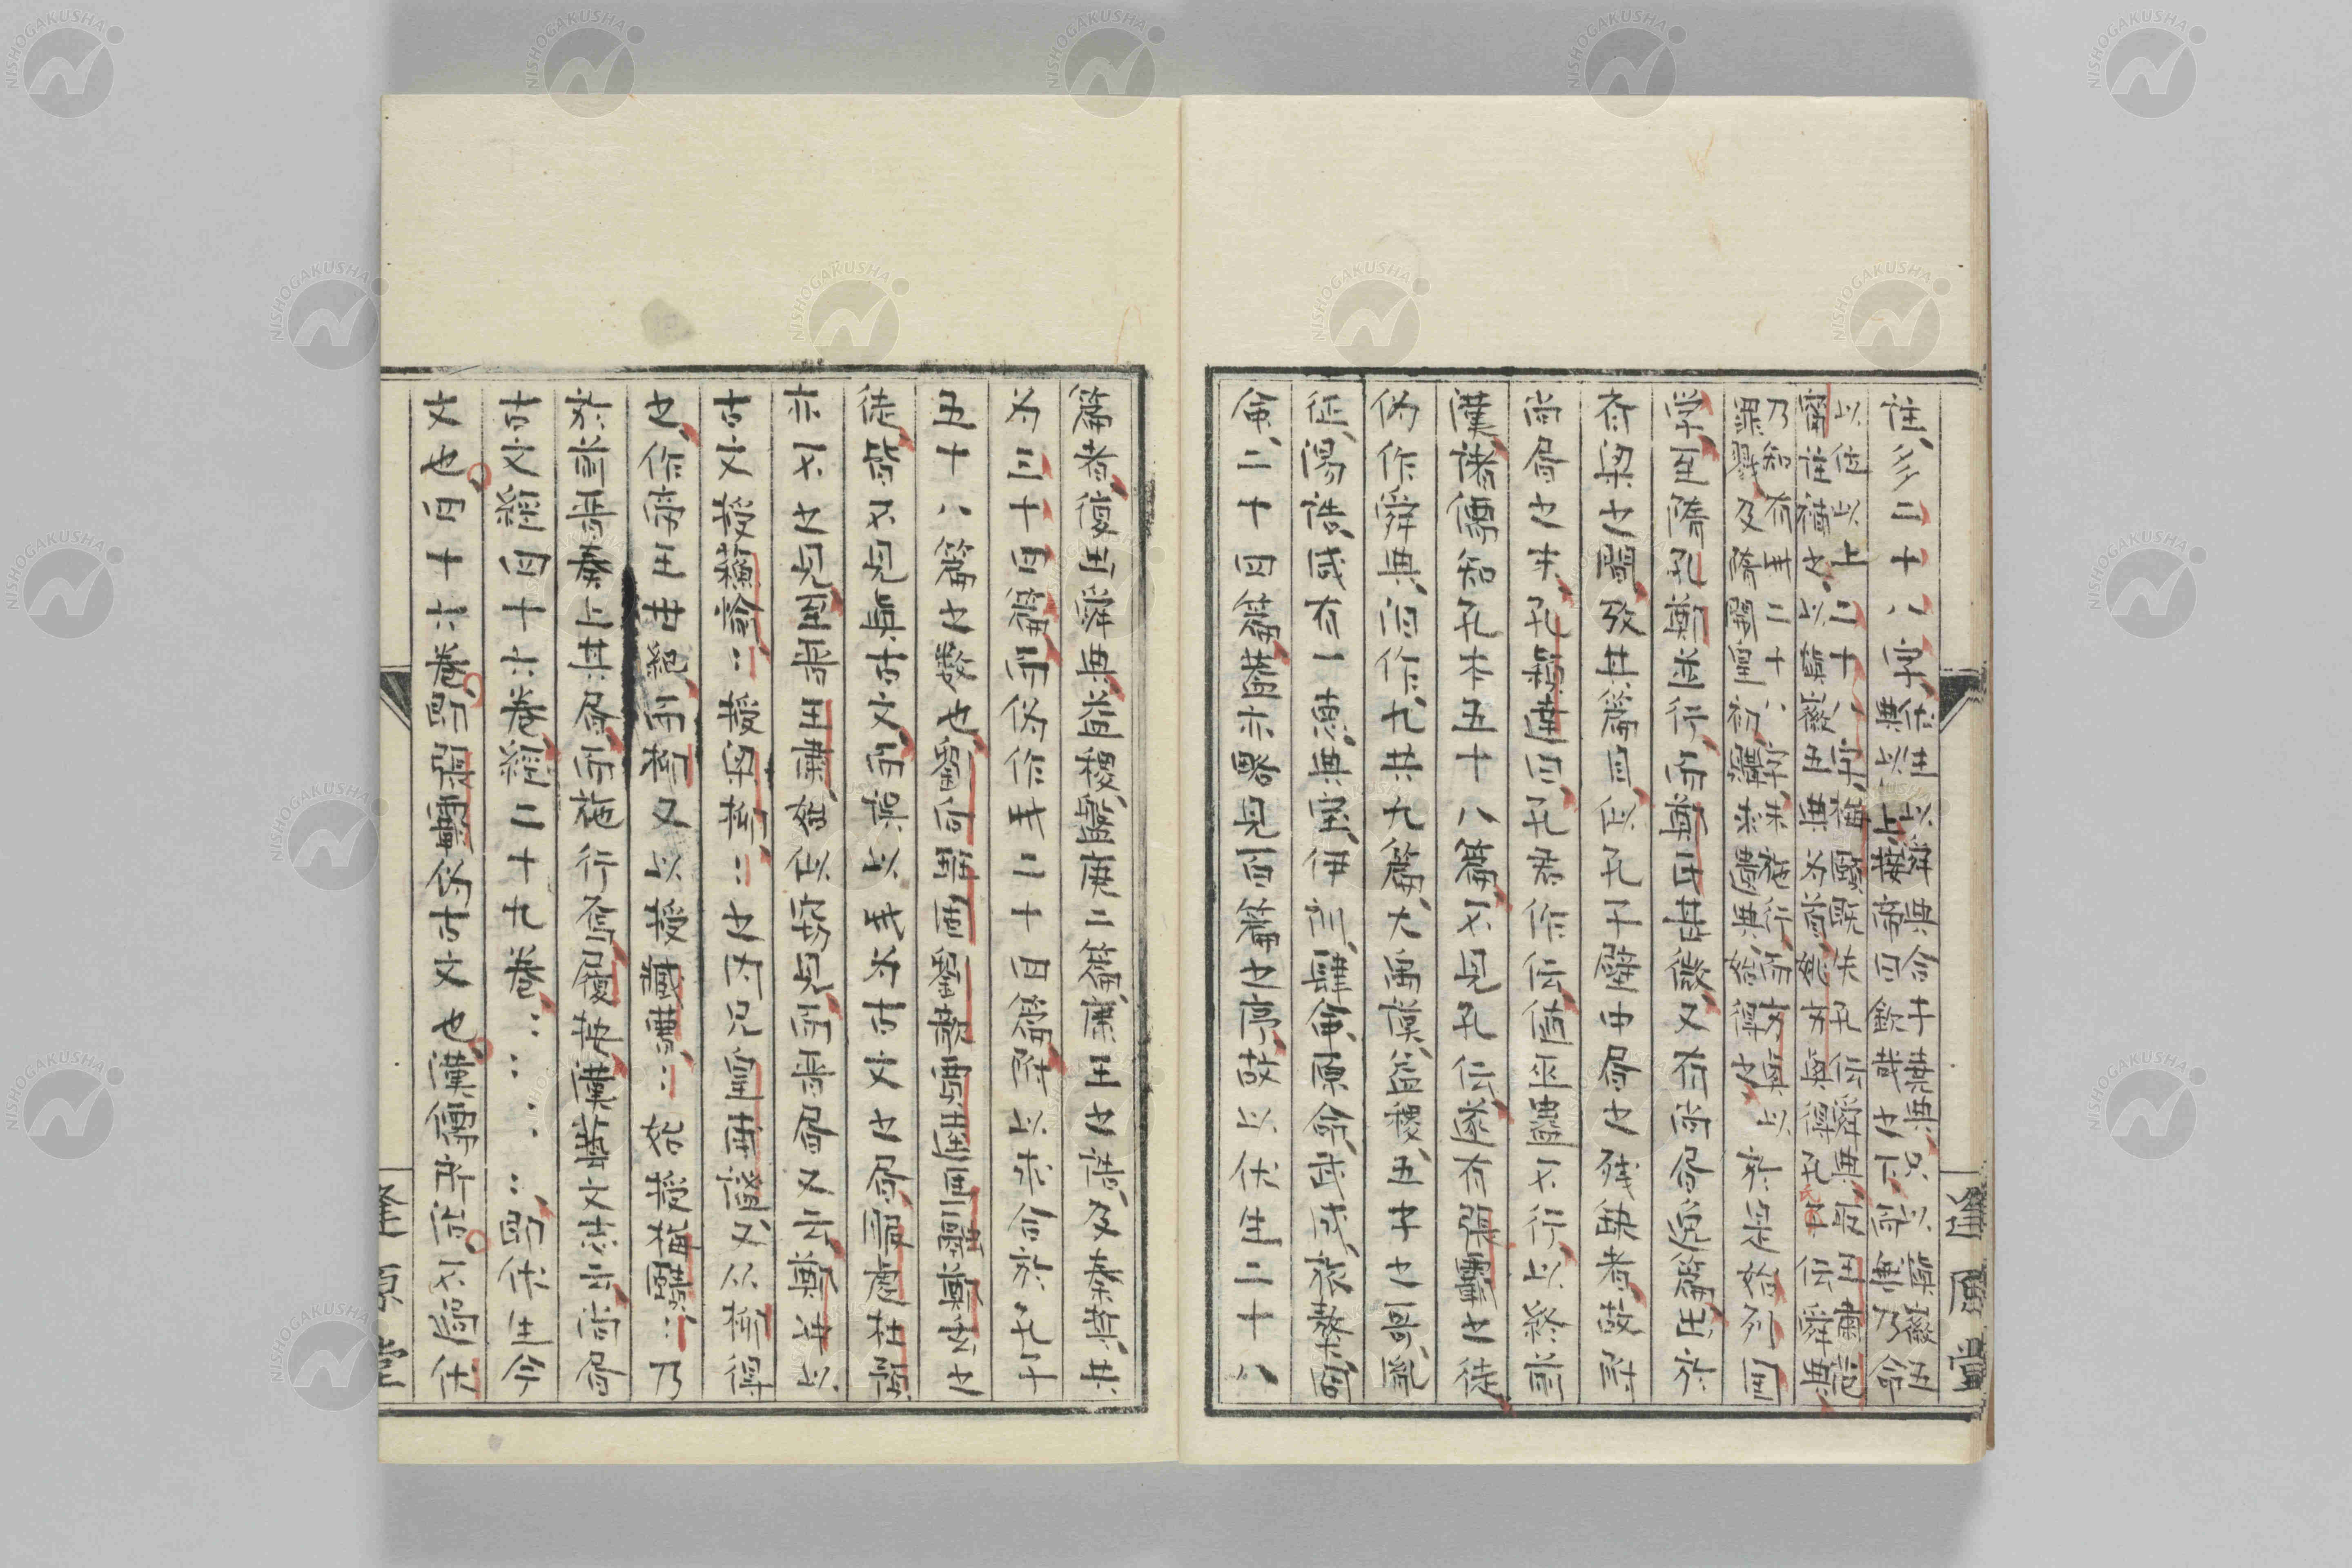 注多二十八字
以位以上二十八字梅賾既失孔伝舜典取王肅范
甯注補之以慎徽五典為首姚方興得孔氏伝舜典
乃知有其二十八字未施行而方興以
罪戮及隋開皇初購求遺典始得之於是始列国
学至隋孔鄭並行而鄭氏甚微又有尚書逸篇出於
斉梁之間攷其篇目似孔子壁中書之残缺者故附
尚書之末孔穎達曰孔君作伝値巫蠱不行以終前
漢諸儒知孔本五十八篇不見孔伝遂有張霸之徒
偽作舜典汩作九共九篇大禹謨益稷五子之歌胤
征湯誥咸有一徳典宝伊訓肆命原命武成旅獒冏
命二十四篇蓋亦略見百篇之序故以伏生二十八
篇者復出舜典益稷盤庚二篇康王之誥及泰誓共
為三十四篇而偽作其二十四篇附以求合於孔子
五十八篇之数也劉向班固劉歆賈逵馬融鄭玄之
徒皆不見真古文而誤以此為古文之書服虔杜預
亦不之見至晋王肅始似窃見而晋書又云鄭冲以
古文授蘇愉〻授梁柳〻之内兄皇甫謐又从柳得
之作帝王世紀而柳又以授臧曹〻始授梅賾〻乃
於前晋奏上其書而施行焉履按漢藝文志云尚書
古文経四十六巻経二十九巻〻〻〻〻即伏生今
文也四十六巻即張霸偽古文也漢儒所伝不過伏